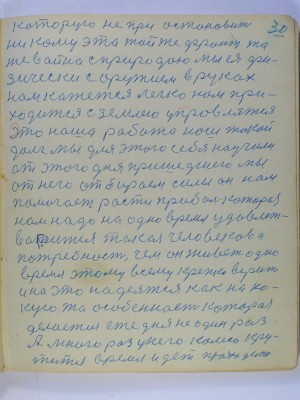 30
которую не при остановит
ни кому эта та й же фронт та
же вайна с природою мы ея фи-
зически с оружием в руках
нам кажется легко нам при-
ходится с землею упровлятся
это наша работа наш такой
долг мы для этого себя научили
от этого дня пришедшего мы
от него отбираем силы он нам
помогает расти прибой которая
нам надо на одно время удовлет-
варится такая человекова
потребность, чем он живет одно
время этому всему крепко верит
и на это надеятся как на ка-
кую та особенност которая
делается еже дня не один раз
А много раз у него колесо кру-
тится время идет проходит